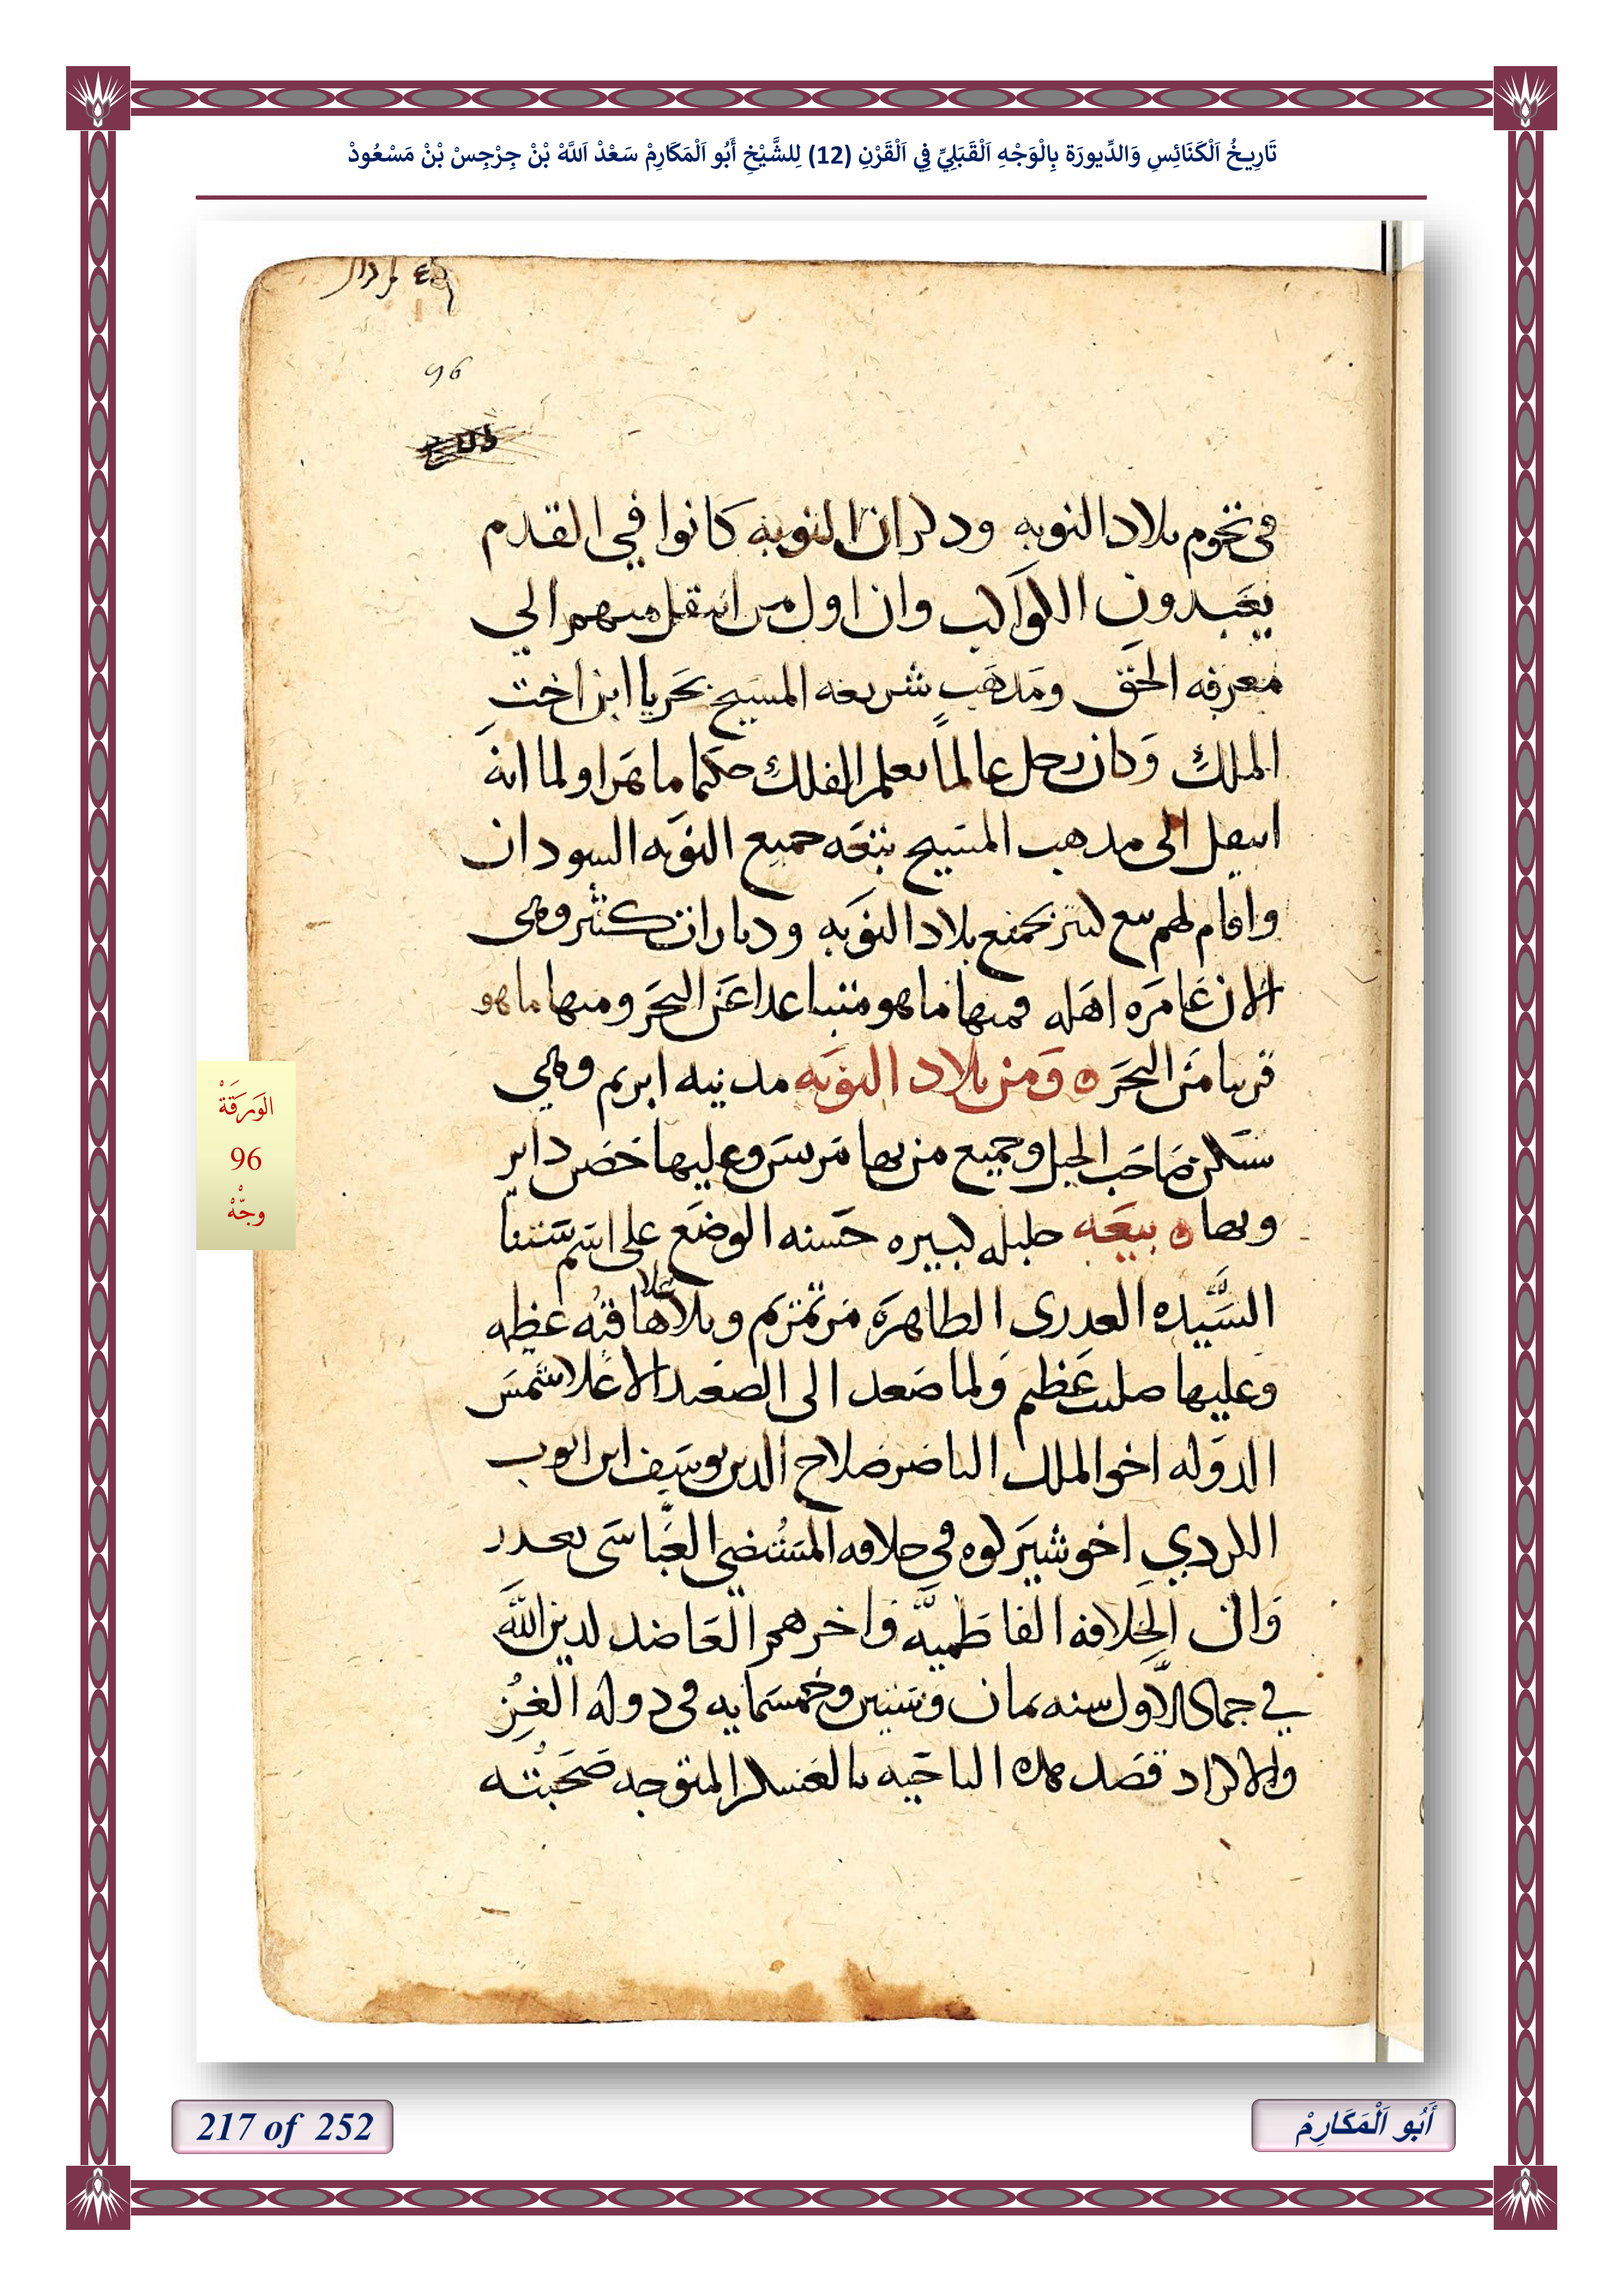 تَارِيخُ اَلْكَنَائِسِ وَالدِّيورَة بِالْوَجْهِ اَلْقَبَلِيِّ فِي اَلْقَرْنِ (12) لِلشَّيْخِ أَبُو اَلْمَكَارِمْ سَعْدْ اَللَّهْ بْنْ جِرْجِسْ بْنْ مَسْعُودْ
96
فى تخوم بلاد النوبه ودكر ان النوبه كانوا في القدم
يعبدون الكواكب وان اول من انتقل منهم الي
معرفه الحق ومدهب شريعه المسيح بحريا ابن اخت
الملك وكان رجل عالماً بعلم الفلك حكيما ماهرا ولما انه
انتقل الى مدهب المسيح تبعه جميع النوبه السودان
واقام لهم بيع كتير بجميع بلاد النوبه وديارات كتير وهى
الان عامره اهله فمنها ما هو متباعدا عن البحر ومنها ما هو
قريبا من البحر ه ومن بلاد النوبه مدينه ابريم وهي
سكن صاحب الجبل وجميع من بها مرسسر وعليها حصن داير
وبها ه بيعه جليله كبيره حسنه الوضع على اسم ستنا
السيده العدرى الطاهره مرتمريم وبأعلاها قبه عظيمه
وعليها صليب عظيم ولما صعد الى الصعيد الاعلا شمس
الدوله اخو الملك الناصر صلاح الدين يوسف ابن ايوب
الكردي اخو شيركوه فى خلافه المستضي العباسى بعد
زوال الخلافه الفاطميه واخرهم العاضد لدين الله
في جماد الاول سنه تمان وستين وخمسمايه فى دوله الغز
والاكراد قصد هده الناحيه بالعسكر المتوجه صحبته
الوَرَقَةْ
96
وجّهْ
217 of 252
أَبُو اَلْمَكَارِمْ